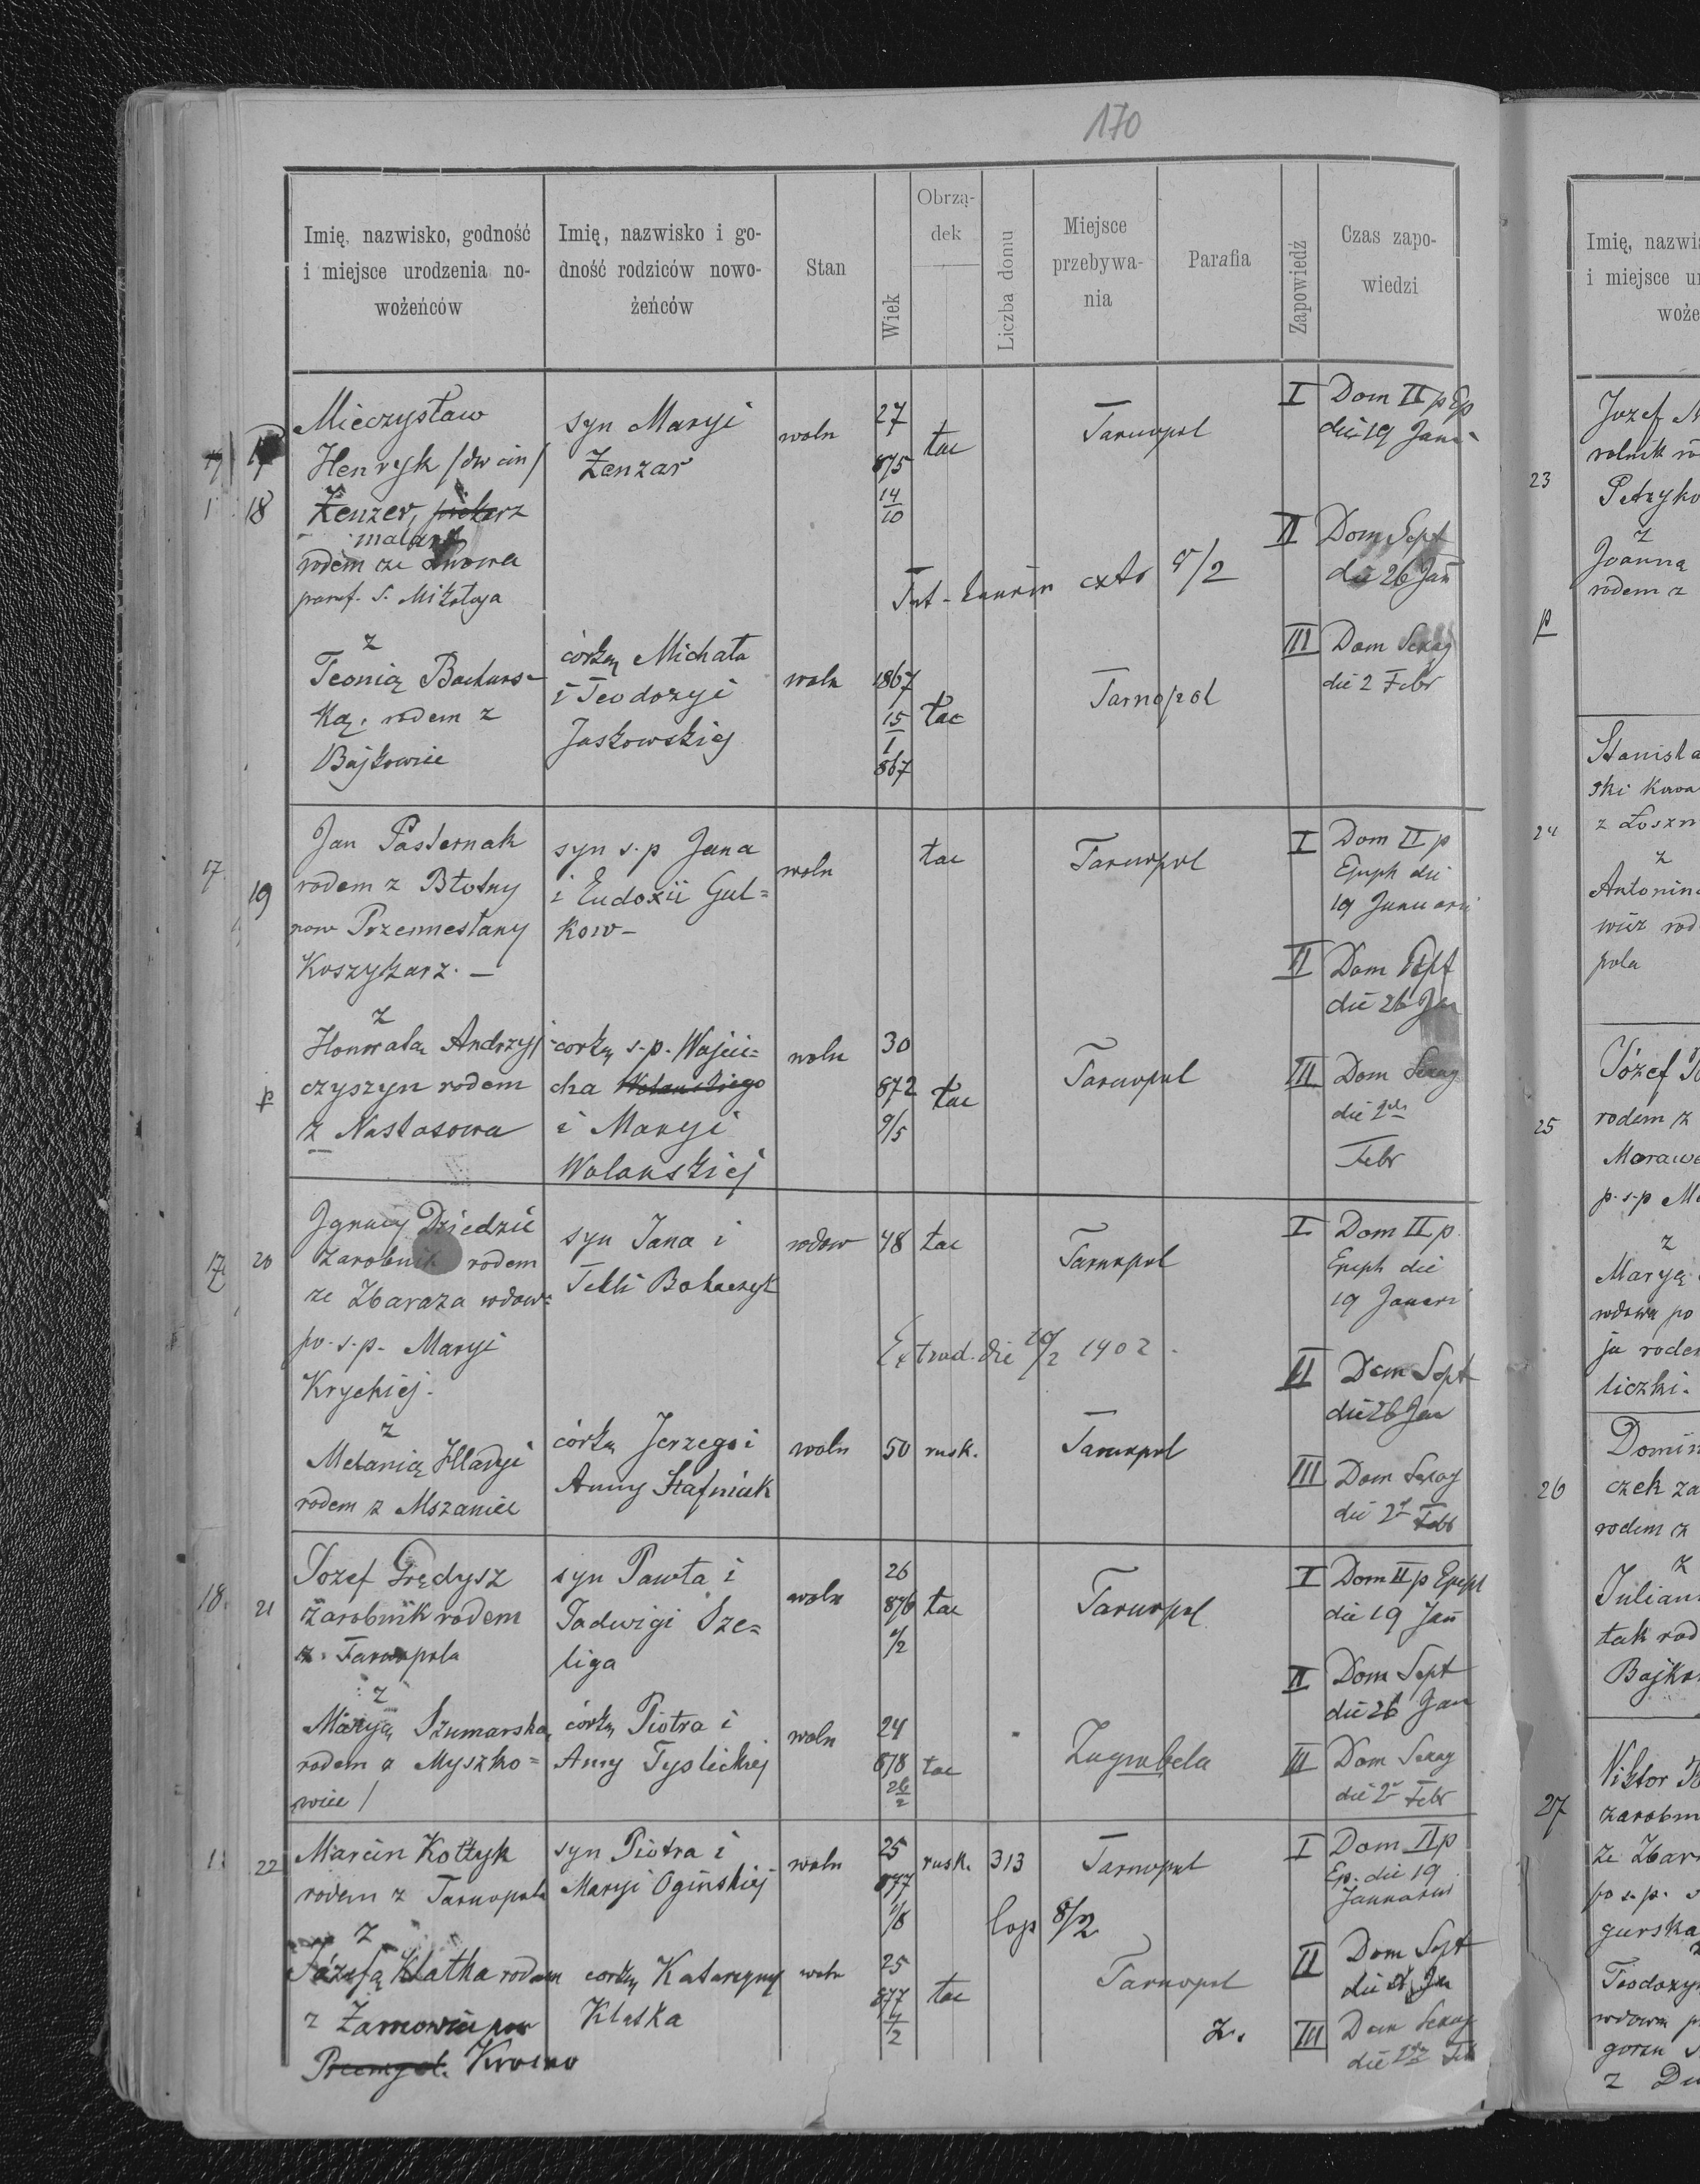 170
Imię, nazwisko, godność
i miejsce urodzenia no-
wożeńców
Imię, nazwisko i go-
dność rodziców nowo-
żeńców
Stan
Wiek
Obrzą-
dek
Liczba domu
Miejsce
przebywa-
nia
Parafia
Zapowiedź
Czas zapo-
wiedzi
18
Mieczysław
Henryk
Żenzer, piekarz
malarz
rodem ze Lwowa
paraf. S. Mikołaja
syn Maryi
Żenzar
woln
27
875
14
10
łac
Tarnopol
I Dom II p Ep
die 19 Janu
II Dom Sept
die 26 Jan
8/2
z
Teonią
rodem z
Bajkowiec
córką Michała
i Teodozyi
Jaskowskiej
woln
1867
15
1
867
łac
Tarnopol
III Dom Sexag
die 2 Febr
17
19
Jan Pasternak
rodem z Błotny
pow Przemeslany
Koszykarz. —
syn s.p Jana
i Eudoxii Gul=
kow —
woln
łac
Tarnopol
I Dom II p
Epiph die
19 Januarii
II Dom Sept
die 26 Jan
z
Honoratą Andrzyj
czyszyn rodem
z Nastasowa
córką s.p. Wojcie=
cha Wolanskiego
i Maryi
Wolanskiej
woln
30
872
9/5
łac
Tarnopol
III Dom Sexag
die 2
Febr
17
20
Ignacy Dziedzic
Zarobnik rodem
ze Zbaraża wdow=
po s.p. Maryi
Kryckiej.
syn Jana i
Tekli Bohaczyk
wdow
48
łac
Tarnopol
I Dom II p.
Epiph die
19 Januari
Extrad. die 1902.
II Dom Sept
die 26 Jan
z
Melanią Hladyj
rodem z Mszaniec
córką Jerzego i
Anny Stafniak
woln
50
rusk.
Tarnopol
III Dom Sexag
die 2 Febr
18.
21
Jozef Grędysz
zarobnik rodem
z Tarnopola
syn Pawła i
Jadwigi Sze=
liga
woln
26
876
łac
Tarnopol
I Dom II p Epiph
die 19 Jan
II Dom Sept
die 26 Jan
z
Maryą Szumarską
rodem z Myszko=
wiec
córką Piotra i
Anny Tyslickiej
woln
24
878
26
2
łac
Zagrobela
III Dom Sexag
die 2 Febr
22
Marcin Kołtyk
rodem z Tarnopola
syn Piotra i
Maryi Ogińskiej
woln
25
877
rusk.
313
Tarnopol
I Dom II p
Ep. die 19
Januarii
8/2
z
Józefą Klatka rodem
z Żarnowiec pow
Przemysl. Krosno
corką Katarzyny
Klatka
woln
25
877
łac
Tarnopol
z.
II Dom Sept
III Dom Sexag
die 2 Feb
Imię, nazwis
i miejsce ur
woże
23
Jozef
rolnik
z
Joanną
rodem z
24
Stanisła
z
Antonin
pola
25
Józef
rodem z
z
Maryą
wdowa po
26
Domin
czek za
rodem z
z
Julian
tak rod
Bajko
27
Wiktor
zarobn
ze Zbar
po s.p.
gurska
Teodozy
wdowa p
z Du